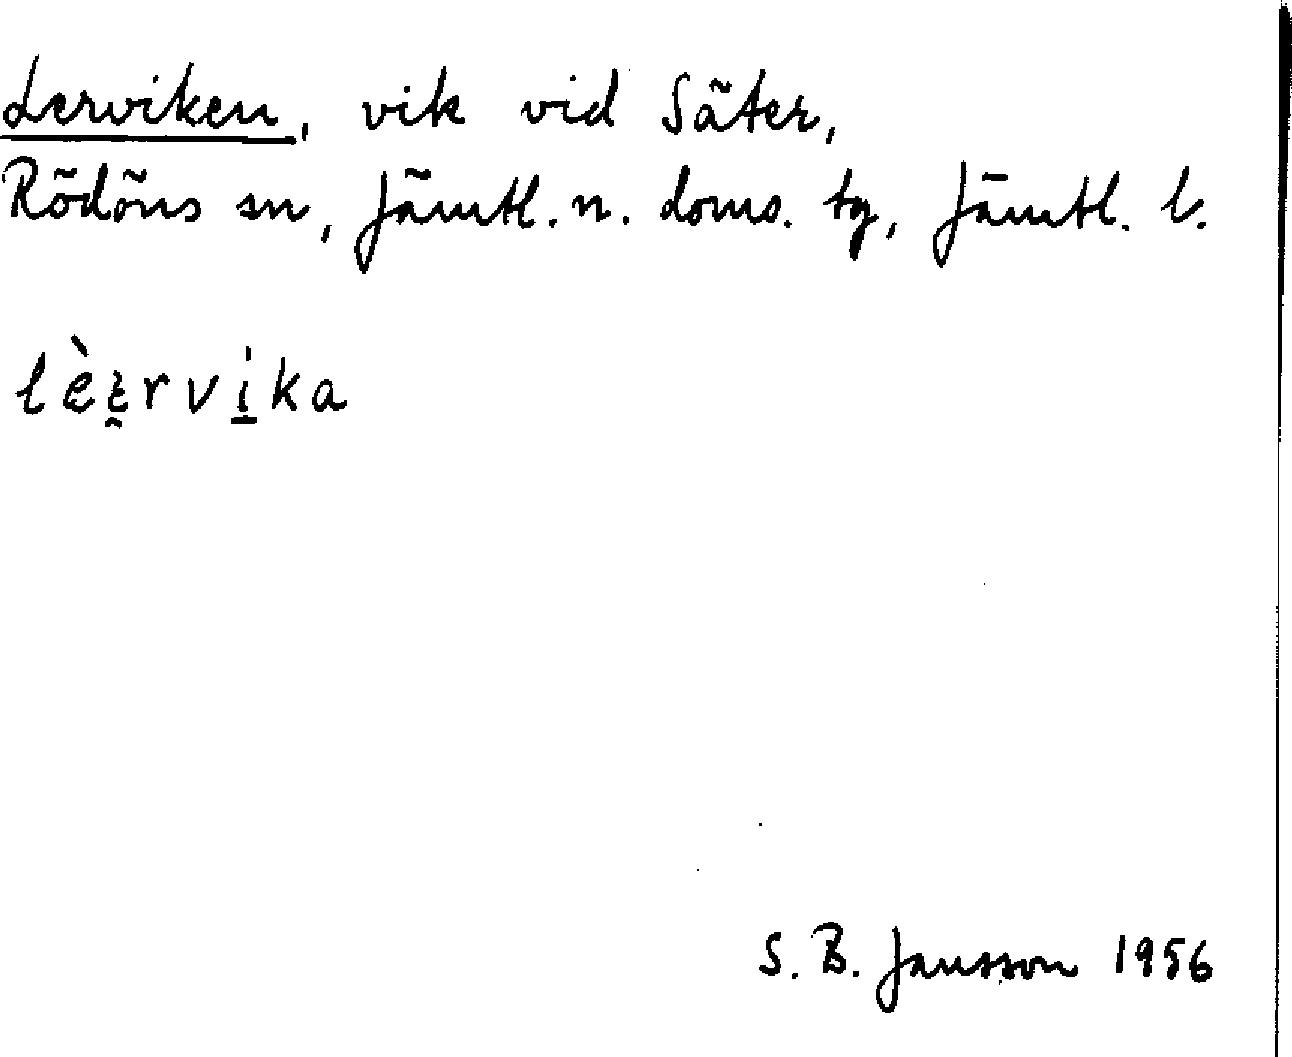 Lerviken, vik vid Säter,
Rödöns sn, Jämtl. n. doms. tg, Jämtl. l.
lèɛ̯rvi̱ka
S. B. Jansson 1956